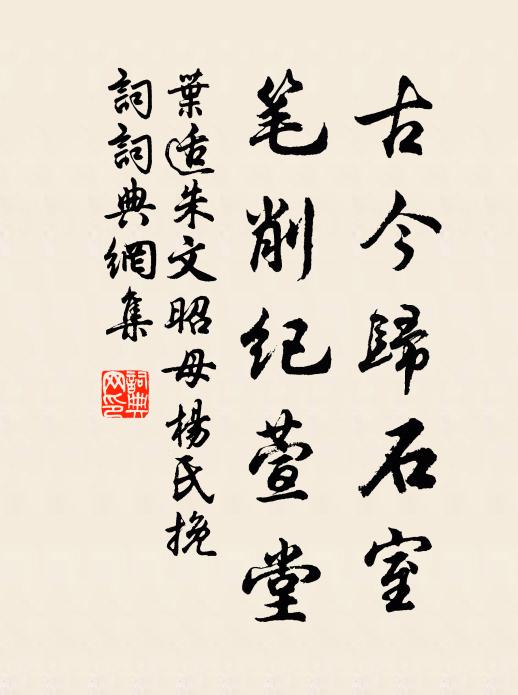 古今歸石室
笔削纪萱堂
葉适朱文昭母楊氏挽
詞詞典網集
詞典網印